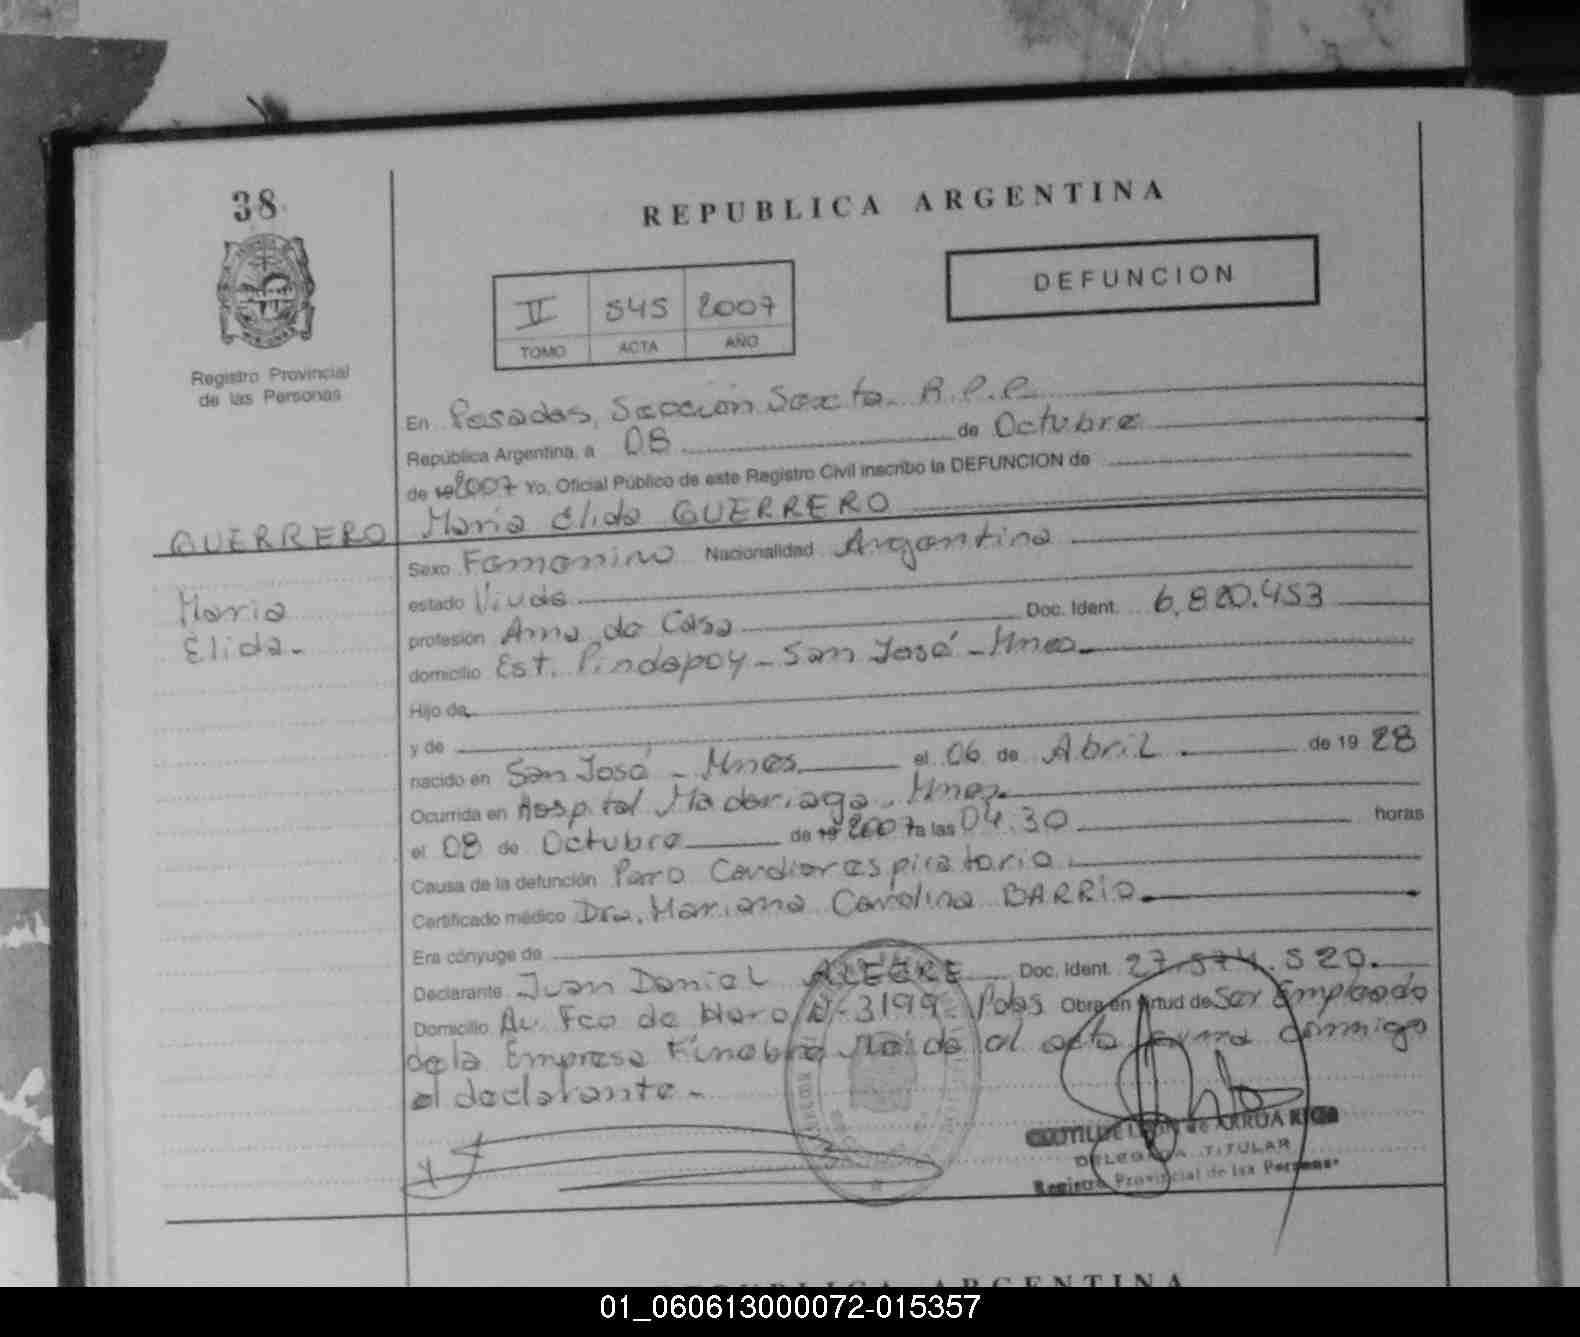 38
REPUBLICA ARGENTINA
DEFUNCION
II 545 2007
TOMO ACTA AÑO
Registro Provincial
de las Personas
En Posadas, Sección Sexta. R.P.P.
República Argentina, a 08 de Octubre
de 19 2007 Yo, Oficial Público de este Registro Civil inscribo la DEFUNCION de
GUERRERO Maria Elida GUERRERO
Maria
Elida.-
Sexo Femenino Nacionalidad Argentina
estado Viuda
profesión Ama de Casa Doc. Ident. 6.820.453
domicilio Est. Pindapoy - San José - Mnes.
Hijo de
y de
nacido en San José - Mnes. el 06 de Abril de 19 28
Ocurrida en Hospital Madariaga. Mnes.
el 08 de Octubre de 19 2007 a las 04.30 horas
Causa de la defunción Paro Cardiorespiratorio
Certificado médico Dra. Mariana Carolina BARRIO
Era cónyuge de
Declarante Juan Daniel ALEGRE Doc. Ident. 27.574.520.
Domicilio Av. Fco de Haro Nº 3199 - Pdas Obra en virtud de Ser Empleado
de la Empresa Fúnebre Leída el acta firma conmigo
el declarante.-
CLOTILDE de ARRUA
DELEGADA TITULAR
Registro Provincial de las Personas
REPUBLICA ARGENTINA
01_060613000072-015357